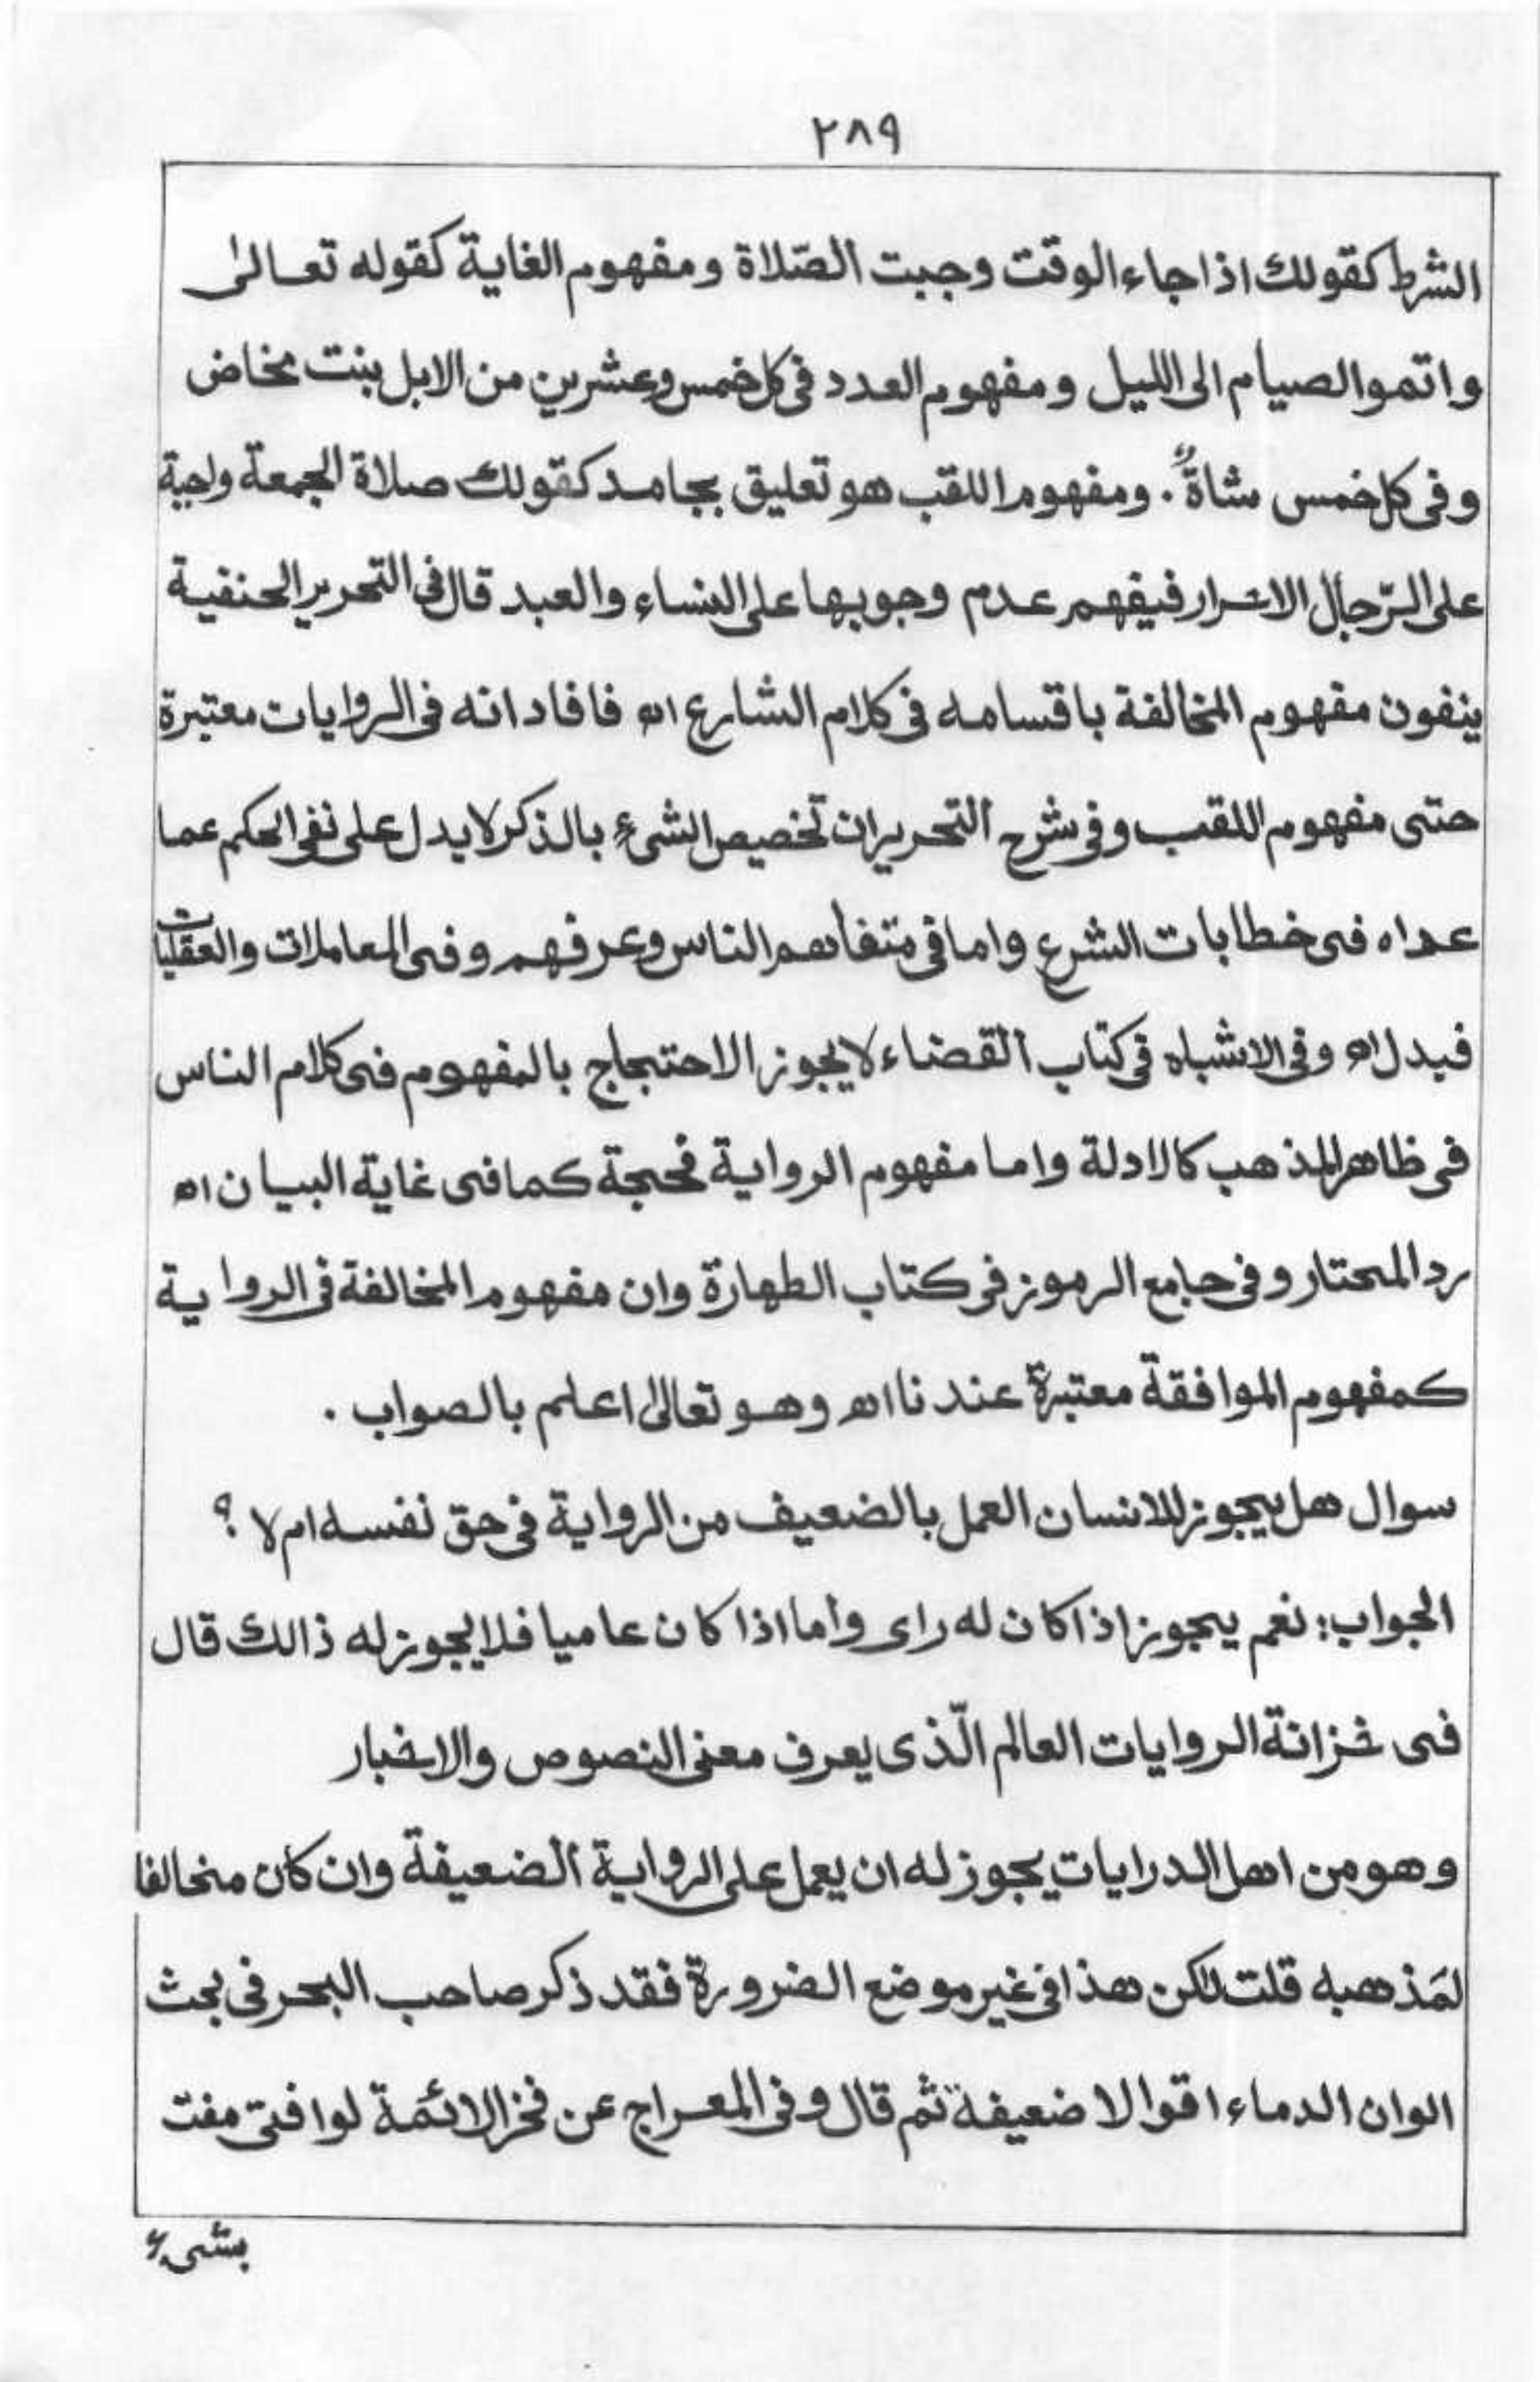 ٢٨٩
الشرط كقولك اذا جاء الوقت وجبت الصّلاة ومفهوم الغاية كقوله تعالىٰ
واتموا الصيام الى الليل ومفهوم العدد فى كل خمس وعشرين من الابل بنت مخاض
وفى كل خمس شاةٌ . ومفهوم اللقب هو تعليق بجامد كقولك صلاة الجمعة واجبة
على الرّجال الاحرار فيفهم عدم وجوبها على النساء والعبد قال فى التحرير الحنفية
ينفون مفهوم المخالفة باقسامه فى كلام الشارع اھ فافاد انه فى الروايات معتبرة
حتى مفهوم اللقب وفى شرح التحرير ان تخصيص الشىء بالذكر لا يدل على نفى الحكم عما
عداه فى خطابات الشرع واما فى متفاهم الناس وعرفهم وفى المعاملات والعقليات
فيدل اھ وفى الاشباه فى كتاب القضاء لا يجوز الاحتجاج بالمفهوم فى كلام الناس
فى ظاهر المذهب كالادلة واما مفهوم الرواية فحجة كما فى غاية البيان اھ
رد المحتار وفى جامع الرموز فى كتاب الطهارة وان مفهوم المخالفة فى الرواية
كمفهوم الموافقة معتبرة عندنا اھ وهو تعالىٰ اعلم بالصواب .
سوال هل يجوز للانسان العمل بالضعيف من الرواية فى حق نفسه ام لا ؟
الجواب: نعم يجوز اذا كان له راى وأما اذا كان عاميا فلا يجوز له ذالك قال
فى خزانة الروايات العالم الّذى يعرف معنى النصوص والاخبار
وهو من اهل الدرايات يجوز له ان يعمل على الرواية الضعيفة وان كان مخالفا
لمَذهبه قلت لكن هذا فى غير موضع الضرورة فقد ذكر صاحب البحر فى بحث
الوان الدماء اقوالا ضعيفة ثم قال وفى المعراج عن فخر الائمة لو افتى مفت
بشى